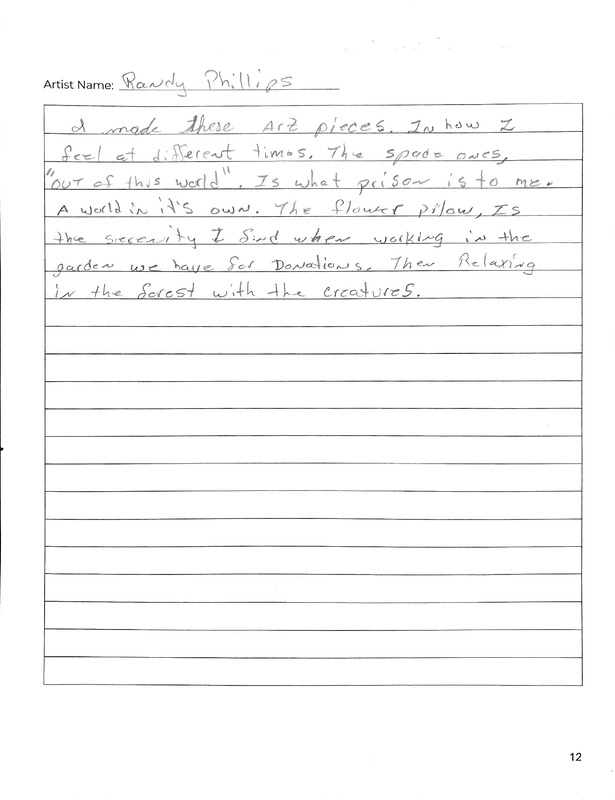 Artist Name: Randy Phillips
I made these Art pieces. In how I
feel at different times. The spade ones,
"out of this world". Is what prison is to me.
A world in it's own. The flower pilow, Is
the sierenity I find when working in the
garden we have for Donations. Then Relaxing
in the forest with the creatures.
12